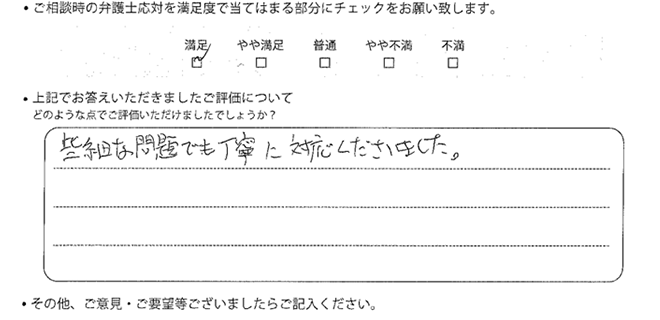 ・ご相談時の弁護士応対を満足度で当てはまる部分にチェックをお願い致します。
満足 やや満足 普通 やや不満 不満
☑ □ □ □ □
・上記でお答えいただきましたご評価について
どのような点でご評価いただけましたでしょうか？
些細な問題でも丁寧に対応くださいました。
・その他、ご意見・ご要望等ございましたらご記入ください。